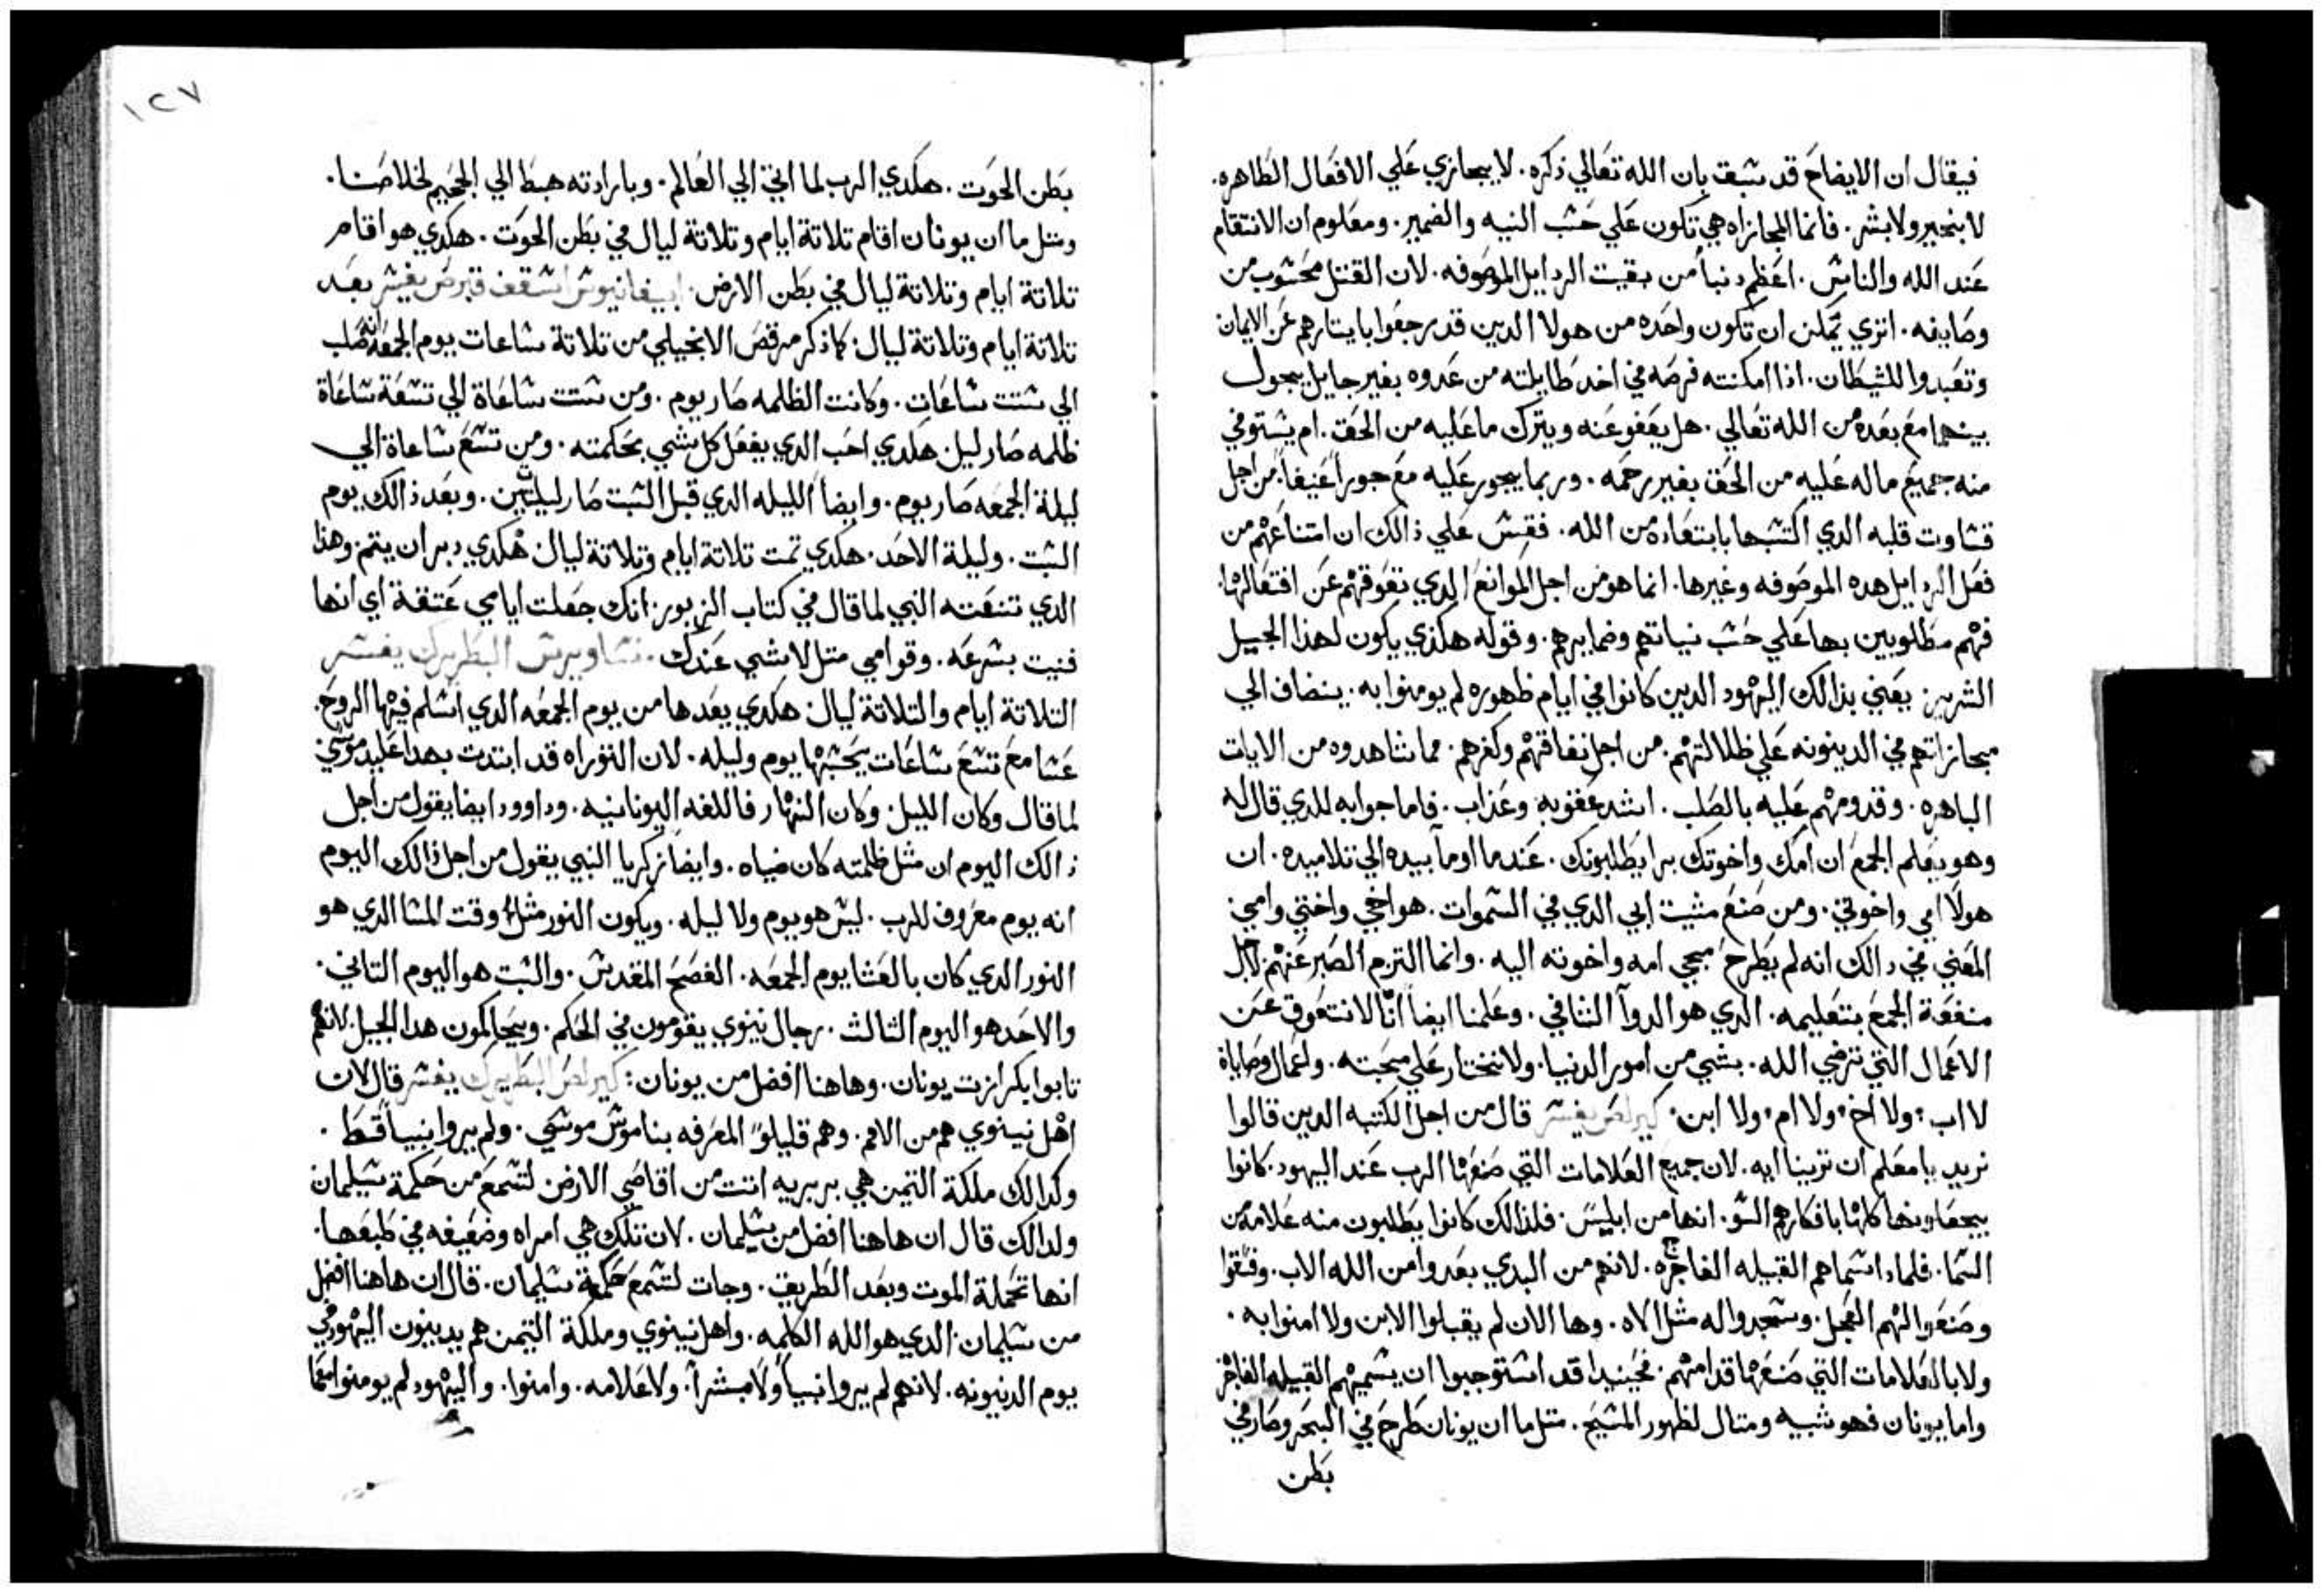 فيقال ان الايضاح قد سبق بان الله تعالي ذكره. لا يجازي علي الافعال الظاهره.
لا بخير ولا بشر. فانما المجازاه هي تكون علي حسب النيه والضمير. ومعلوم ان الانتقام
عند الله والناس. اعظم دنباً من بقيت الردايل الموصوفه. لان القتل محسوب من
وصايفه. اتري يمكن ان تكون واحده من هولا الدين قد رجعوا بايتارهم عن الايمان
وتعبدوا للشيطان. اذا امكنته فرصه في اخد طايلته من عدوه بغير حايل يحول
بينهما مع بعده من الله تعالي. هل يعفو عنه ويترك ما عليه من الحق. ام يستوفي
منه جميع ماله عليه من الحق بغير رحمه. وربما يجور عليه مع جوراً عنيفاً. من اجل
قساوت قلبه الدي اكتسبها بابتعاده من الله. فقس علي ذالك ان امتناعهم من
فعل الردايل هده الموصوفه وغيرها. انما هو من اجل الموانع الدي تعوقهم عن افتعالها.
فهم مطلوبين بها علي حسب نياتهم وضمايرهم. وقوله هكذي يكون لهذا الجيل
الشرير: يعني بدالك اليهود الدين كانوا في ايام ظهوره لم يومنوا به. ينضاف الي
مجازاتهم في الدينونه علي ظلالتهم. من اجل نفاقهم وكفرهم. مما شاهدوه من الايات
الباهره. وقدومهم عليه بالصلب. اشد عقوبة وعذاب. فاما جوابه للدي قال له
وهو يعلم الجمع ان امك واخوتك برا يطلبونك. عند ما اوماً بيده الي تلاميده. ان
هولا امي واخوتي. ومن صنع مشيت ابي الدي في السموات. هو اخي واختي وامي:
المعني في دالك انه لم يطرح مجي امه واخوته اليه. وانما التزم الصبر عنهم لاجل
منفعة الجمع بتعليمه. الدي هو الدوآ الشافي. وعلمنا ايضاً انّا لا نتعوق عن
الاعمال التي ترضي الله. بشي من امور الدنيا. ولا نختار علي محبته. واعمال وصاياة
لا اب: ولا اخ: ولا ام: ولا ابن: كيرلص يفسر قال من اجل الكتبه الدين قالوا
نريد يا معلم ان ترينا ايه. لان جميع العلامات التي صنعها الرب عند اليهود. كانوا
يجعلونها كلها بافكارهم السو. انها من ابليس. فلذالك كانوا يطلبون منه علامه من
السما. فلماد اسماهم القبيله الفاجره. لانهم من البدي بعدوا من الله الاب. وفسقوا
وصنعوا لهم العجل. وسجدوا له مثل الاه. وها الان لم يقبلوا الابن ولا امنوا به.
ولا بالعلامات التي صنعها قدامهم. فحينيدا قد استوجبوا ان يسميهم القبيله الفاجره
واما يونان فهو شبيه ومتال لظهور المسيح. متل ما ان يونان طرح في البحر وصار في
بطن
١٢٧
بطن الحوت. هكدي الرب لما اتي الي العالم. وبارادته هبط الي الجحيم لخلاصنا.
ومتل ما ان يونان اقام تلاتة ايام وتلاتة ليال في بطن الحوت. هكدي هو اقام
تلاتة ايام وتلاتة ليال في بطن الارض. ابيفانيوس اسقف قبرص يفسر بعد
تلاتة ايام وتلاتة ليال: كما ذكر مرقص الانجيلي من تلاتة ساعات يوم الجمعه انه صلب
الي ستت ساعات. وكانت الظلمه صار يوم. ومن ستت ساعاة الي تسعة ساعاة
ظلمه صار ليل: هكدي احب الدي يفعل كل شي بحكمته. ومن تسع ساعاة الي
ليلة الجمعه صار يوم. وايضاً الليله الدي قبل السبت صار ليليتين. وبعد ذالك يوم
السبت. وليلة الاحد. هكدي تمت تلاتة ايام وتلاتة ليال: هكدي دبر ان يتم. وهذا
الدي تنبته النبي لما قال في كتاب الزبور: انك جعلت ايامي عتقة اي انها
فنيت بسرعه. وقوامي متل لاشي عندك. ساويرس البطريرك يفسر
التلاتة ايام والتلاتة ليال: هكدي يعدها من يوم الجمعه الدي اسلم فيها الروح.
عشا مع تسع ساعات يحسبها يوم وليله. لان التوراه قد ابتدت بهدا علي يد موسي
لما قال وكان الليل وكان النهار فاللغه اليونانيه. وداوود ايضا يقول من اجل
ذالك اليوم ان مثل ظلمته كان ضياه. وايضاً زكريا النبي يقول من اجل ذالك اليوم
انه يوم معروف للرب. ليس هو يوم ولا ليله. ويكون النور مثل وقت المسا الدي هو
النور الدي كان بالعشا يوم الجمعه. الفصح المقدس. والسبت هو اليوم التاني.
والاحد هو اليوم الثالث. رجال نينوي يقومون في الحكم. ويحاكمون هدا الجيل لانهم
تابوا بكرازت يونان. وهاهنا افضل من يونان: كيرلص البطريرك يفسر قال لان
اهل نينوي هم من الامم. وهم قليلوا المعرفه بناموس موسي. ولم يروا نبياً قط.
وكدالك ملكة التيمن هي بربريه اتت من اقاصي الارض لتسمع من حكمة سليمان
ولدالك قال ان هاهنا افضل من سليمان. لان تلك هي امراه وضعيفه في طبعها.
انها تحملة الموت وبعد الطريق. وجات لتسمع حكمة سليمان. قال ان هاهنا افضل
من سليمان الدي هو الله الكلمه. واهل نينوي وملكة التيمن هم يدينون اليهود في
يوم الدينونه. لانهم لم يروا نبياً ولا مبشراً. ولا علامه. وامنوا. واليهود لم يومنوا معما